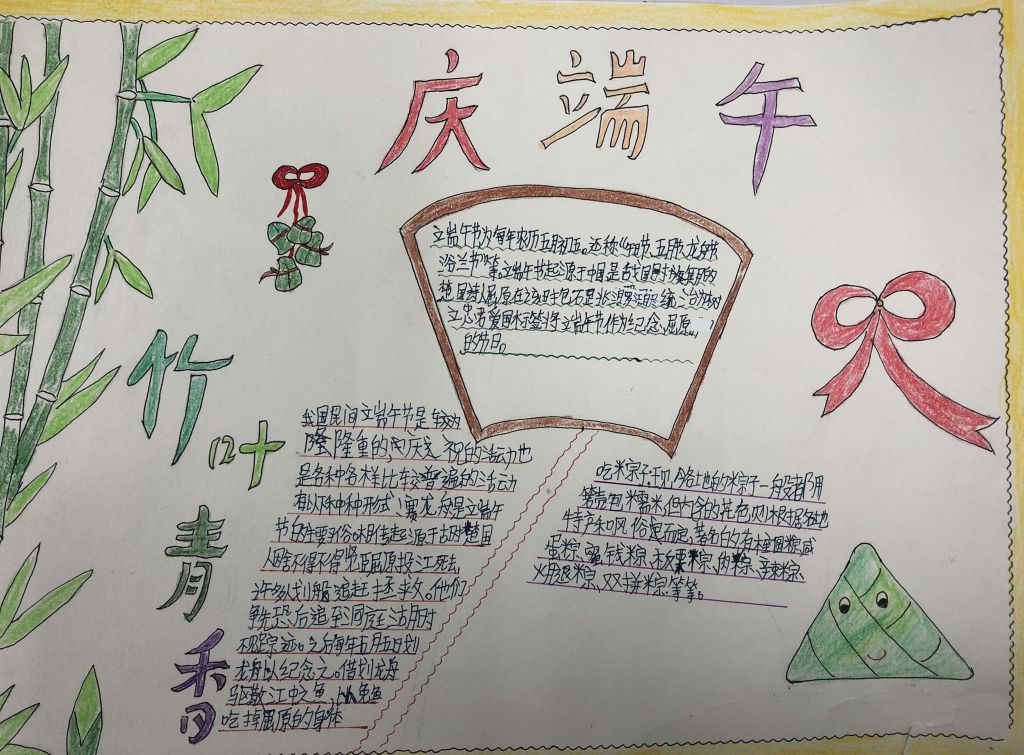 庆端午
端午节为每年农历五月初五。还称"节、五月节、龙舟节
浴兰节"等。端午节起源于中国是古战国时
楚国诗人屈原在该
立忠君爱国标签将端午节作为纪念屈原
的节日。
竹叶青香
我国民间端午节是较为
隆隆重的,庆祝的活动也
是各种各样比较普遍的活动
有以种种形式:赛龙舟是端午
节的主要习俗。相传起源于古时楚国
人舍不得不得贤臣屈原投江死去
许多划船追赶拯救。他们
争先恐后追至洞庭湖时
不见踪迹。之后每年五月五日划
龙舟以纪念之。借划龙舟
驱散江中之鱼,以免鱼
吃掉屈原的身体
吃粽子:现今各地的粽子一般都用
箬壳包糯米,但内含的花色则根据各地
特产和风俗而定,著名的有桂圆粽、咸
蛋粽、蜜钱粽、板栗粽、肉粽、辣粽、
火腿粽、双拼粽.等等。